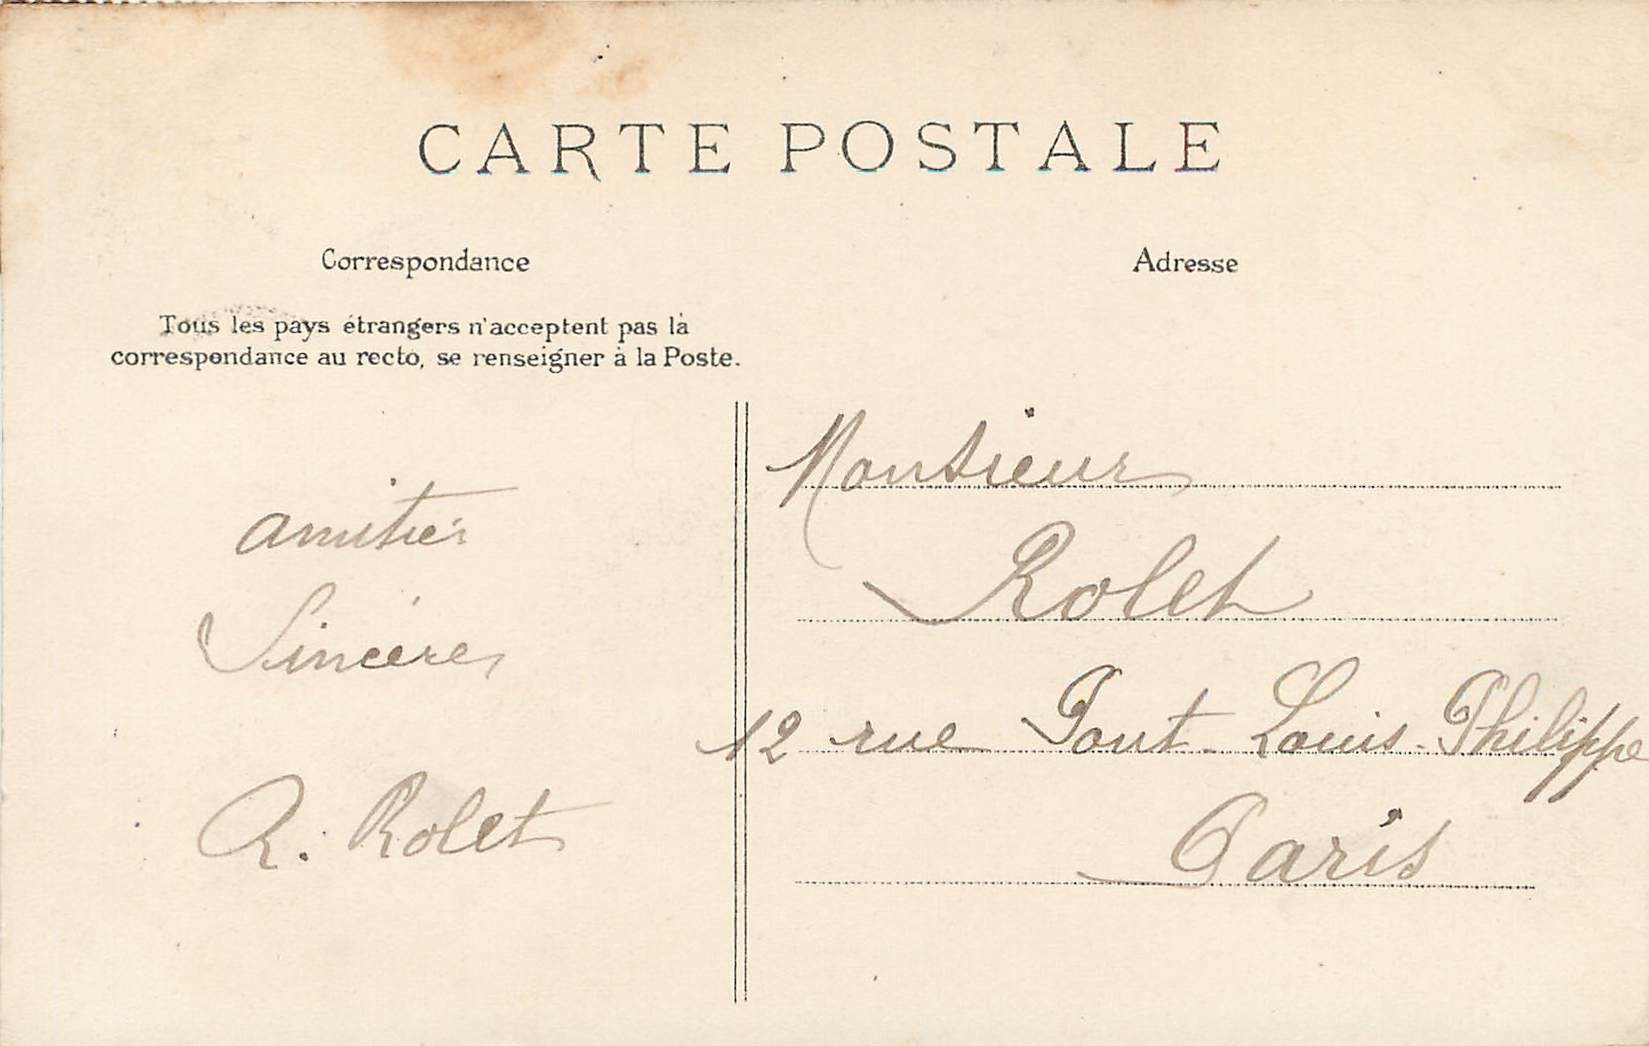 CARTE POSTALE
Correspondance
Tous les pays étrangers n'acceptent pas la
correspondance au recto, se renseigner à la Poste.
amitiés
Sincères
R. Rolet
Adresse
Monsieur
Rolet
12 rue Pont-Louis-Philippe
Paris